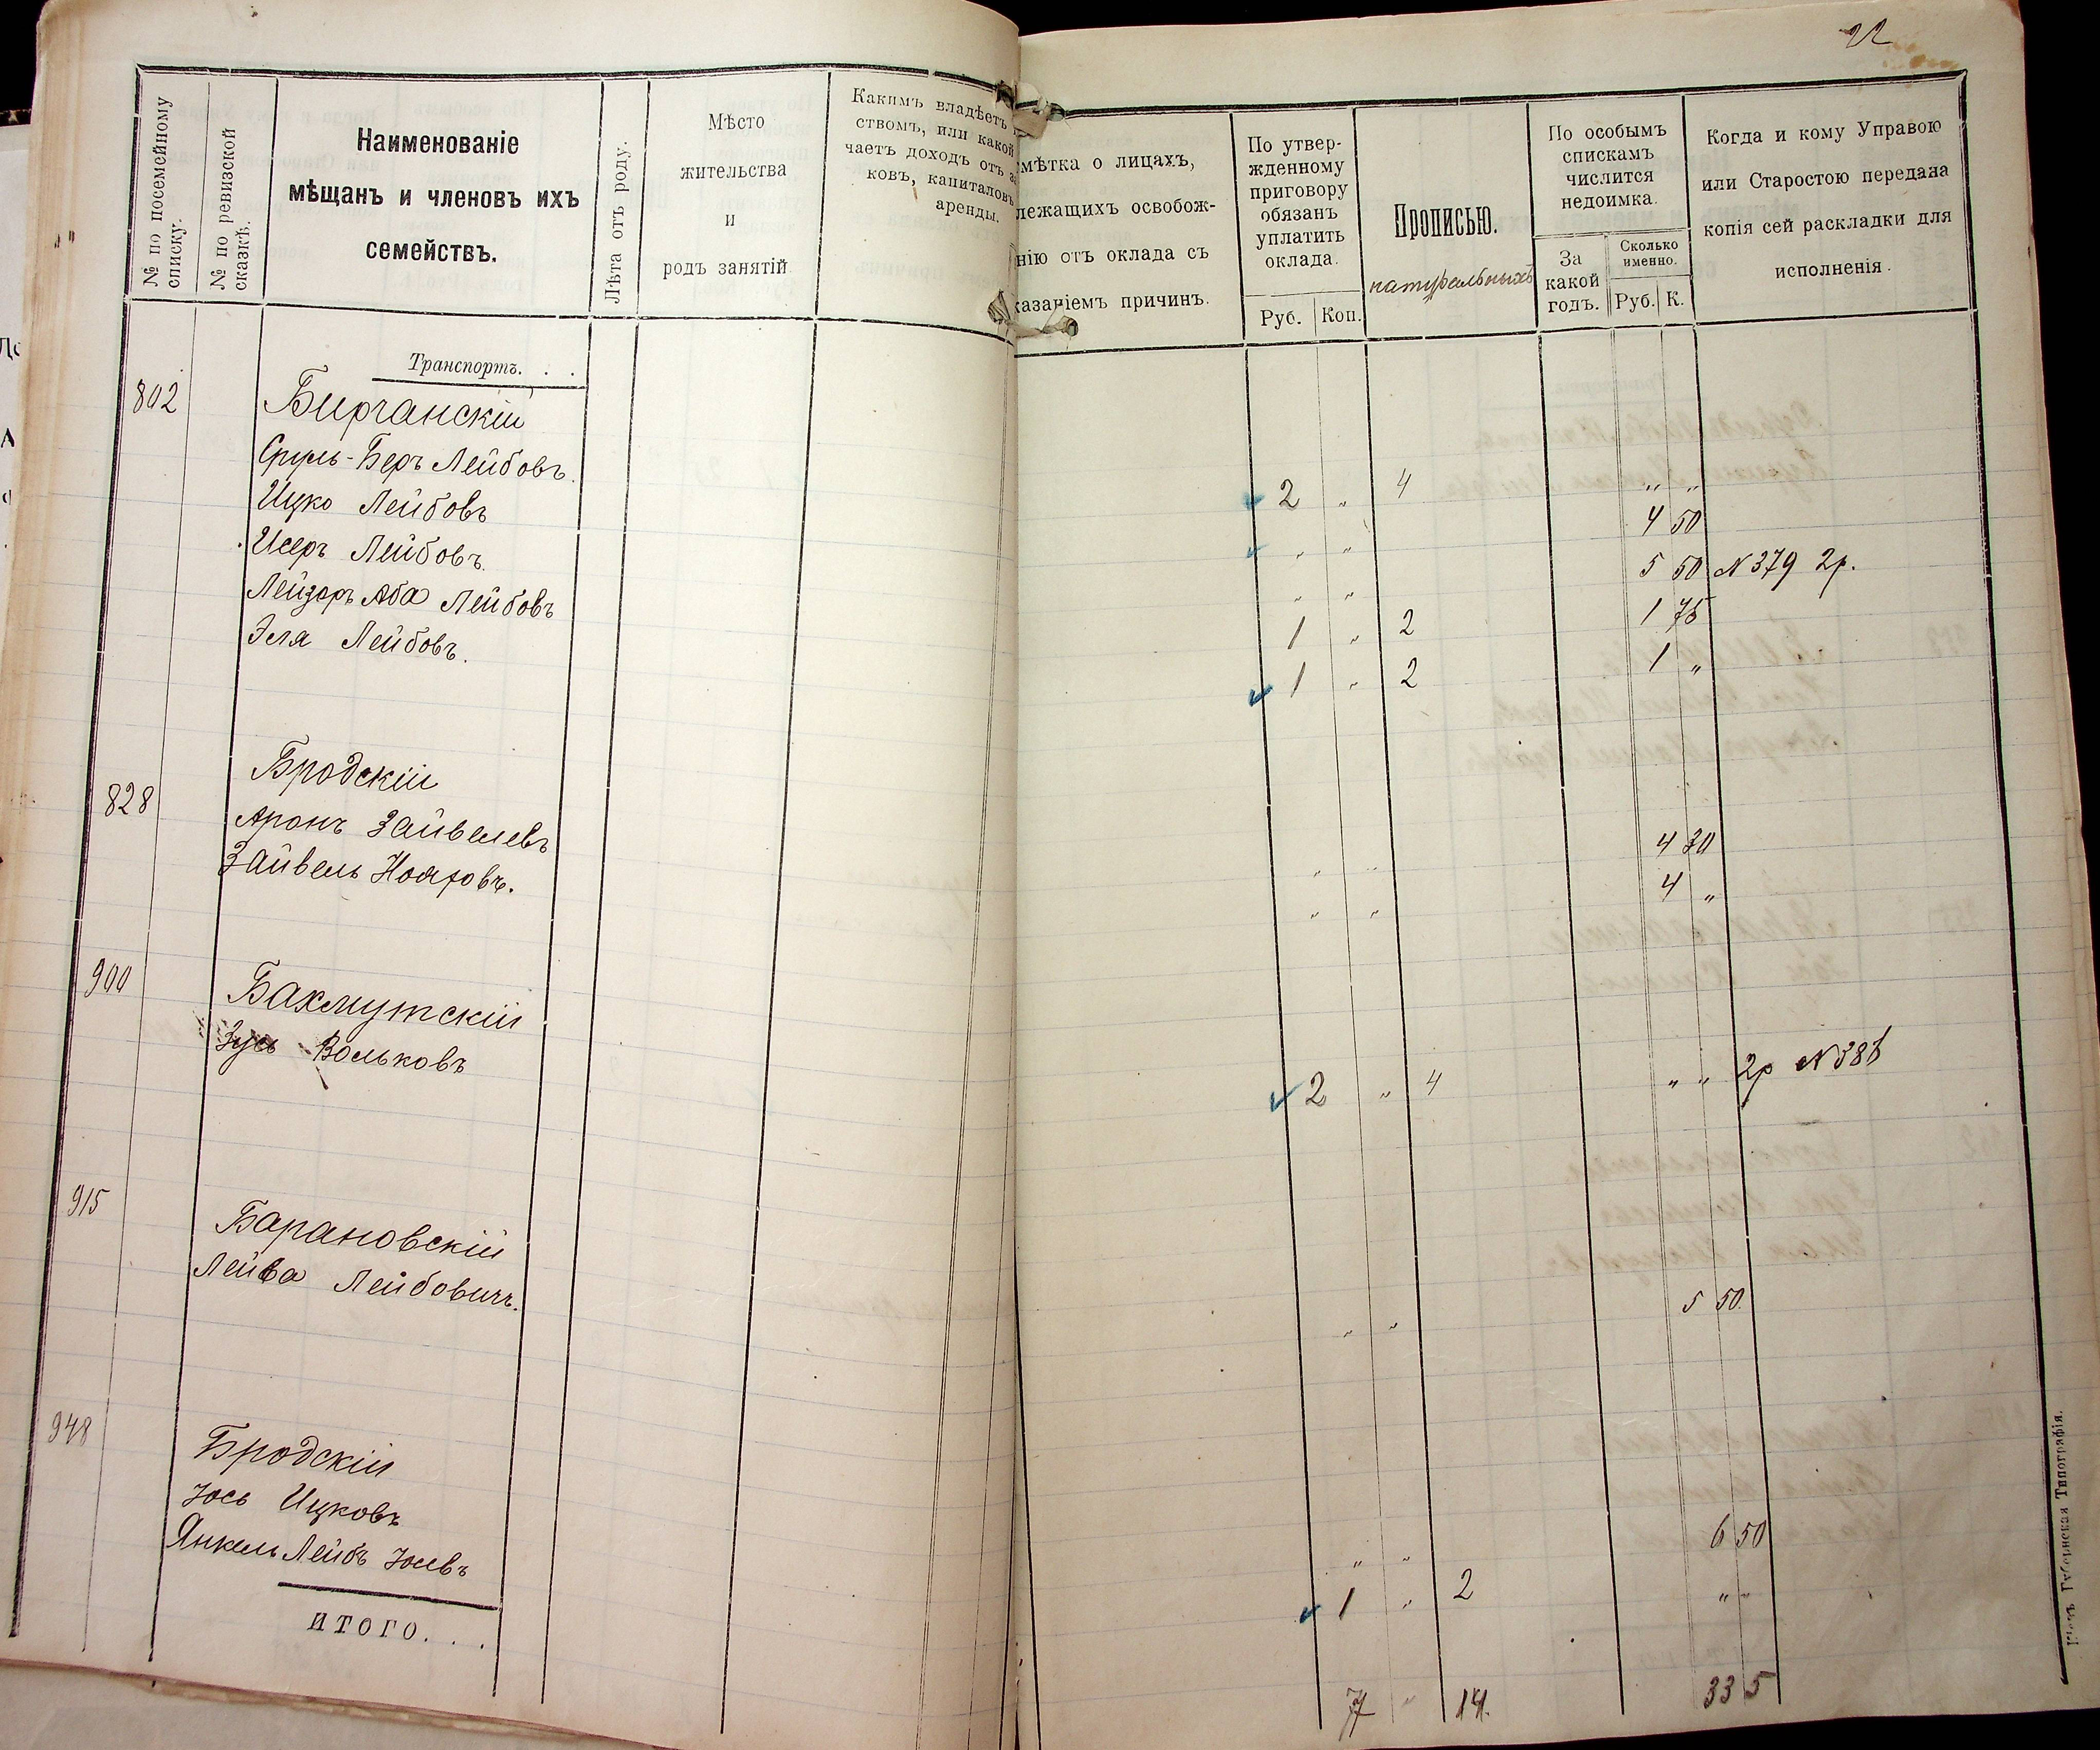 22
№ по посемейному
списку.
№ по ревизской
сказкѣ.
Наименованіе
мѣщанъ и членовъ ихъ
семействъ.
Лѣта отъ роду.
Мѣсто
жительства
и
родъ занятій
Какимъ владѣетъ
ствомъ, или какой
чаетъ доходъ отъ
ковъ, капиталовъ
аренды.
мѣтка о лицахъ,
лежащихъ освобож-
нію отъ оклада съ
казаніемъ причинъ.
По утвер-
жденному
приговору
обязанъ
уплатить
оклада.
Руб. Коп.
Прописью.
натуральныхъ
По особымъ
спискамъ
числится
недоимка.
За
какой
годъ.
Сколько
именно.
Руб. К.
Когда и кому Управою
или Старостою передана
копія сей раскладки для
исполненія.
Транспортъ. . .
802 Бирчанскій
Сруль-Беръ Лейбовъ 2 „ 4 „ „
Ицко Лейбовъ „ „ 4 50
Исеръ Лейбовъ „ „ 5 50 N 379 2р.
Лейзоръ Аба Лейбовъ 1 „ 2 1 75
Эля Лейбовъ. 1 „ 2 1 „
828 Бродскій
Аронъ Зайвелевъ „ „ 4 30
Зайвель Нояховъ. „ „ 4 „
900 Бахмутскій
Зусь Вольковъ 2 „ 4 „ „ 2р N 386
915 Барановскій
Лейва Лейбовичъ. „ „ 5 50
948 Бродскій
Іось Ицковъ „ „ 6 50
Янкель Лейбъ Іосевъ 1 „ 2 „ „
ИТОГО. . . 7 „ 14. 33 5
Губернская Типографія.